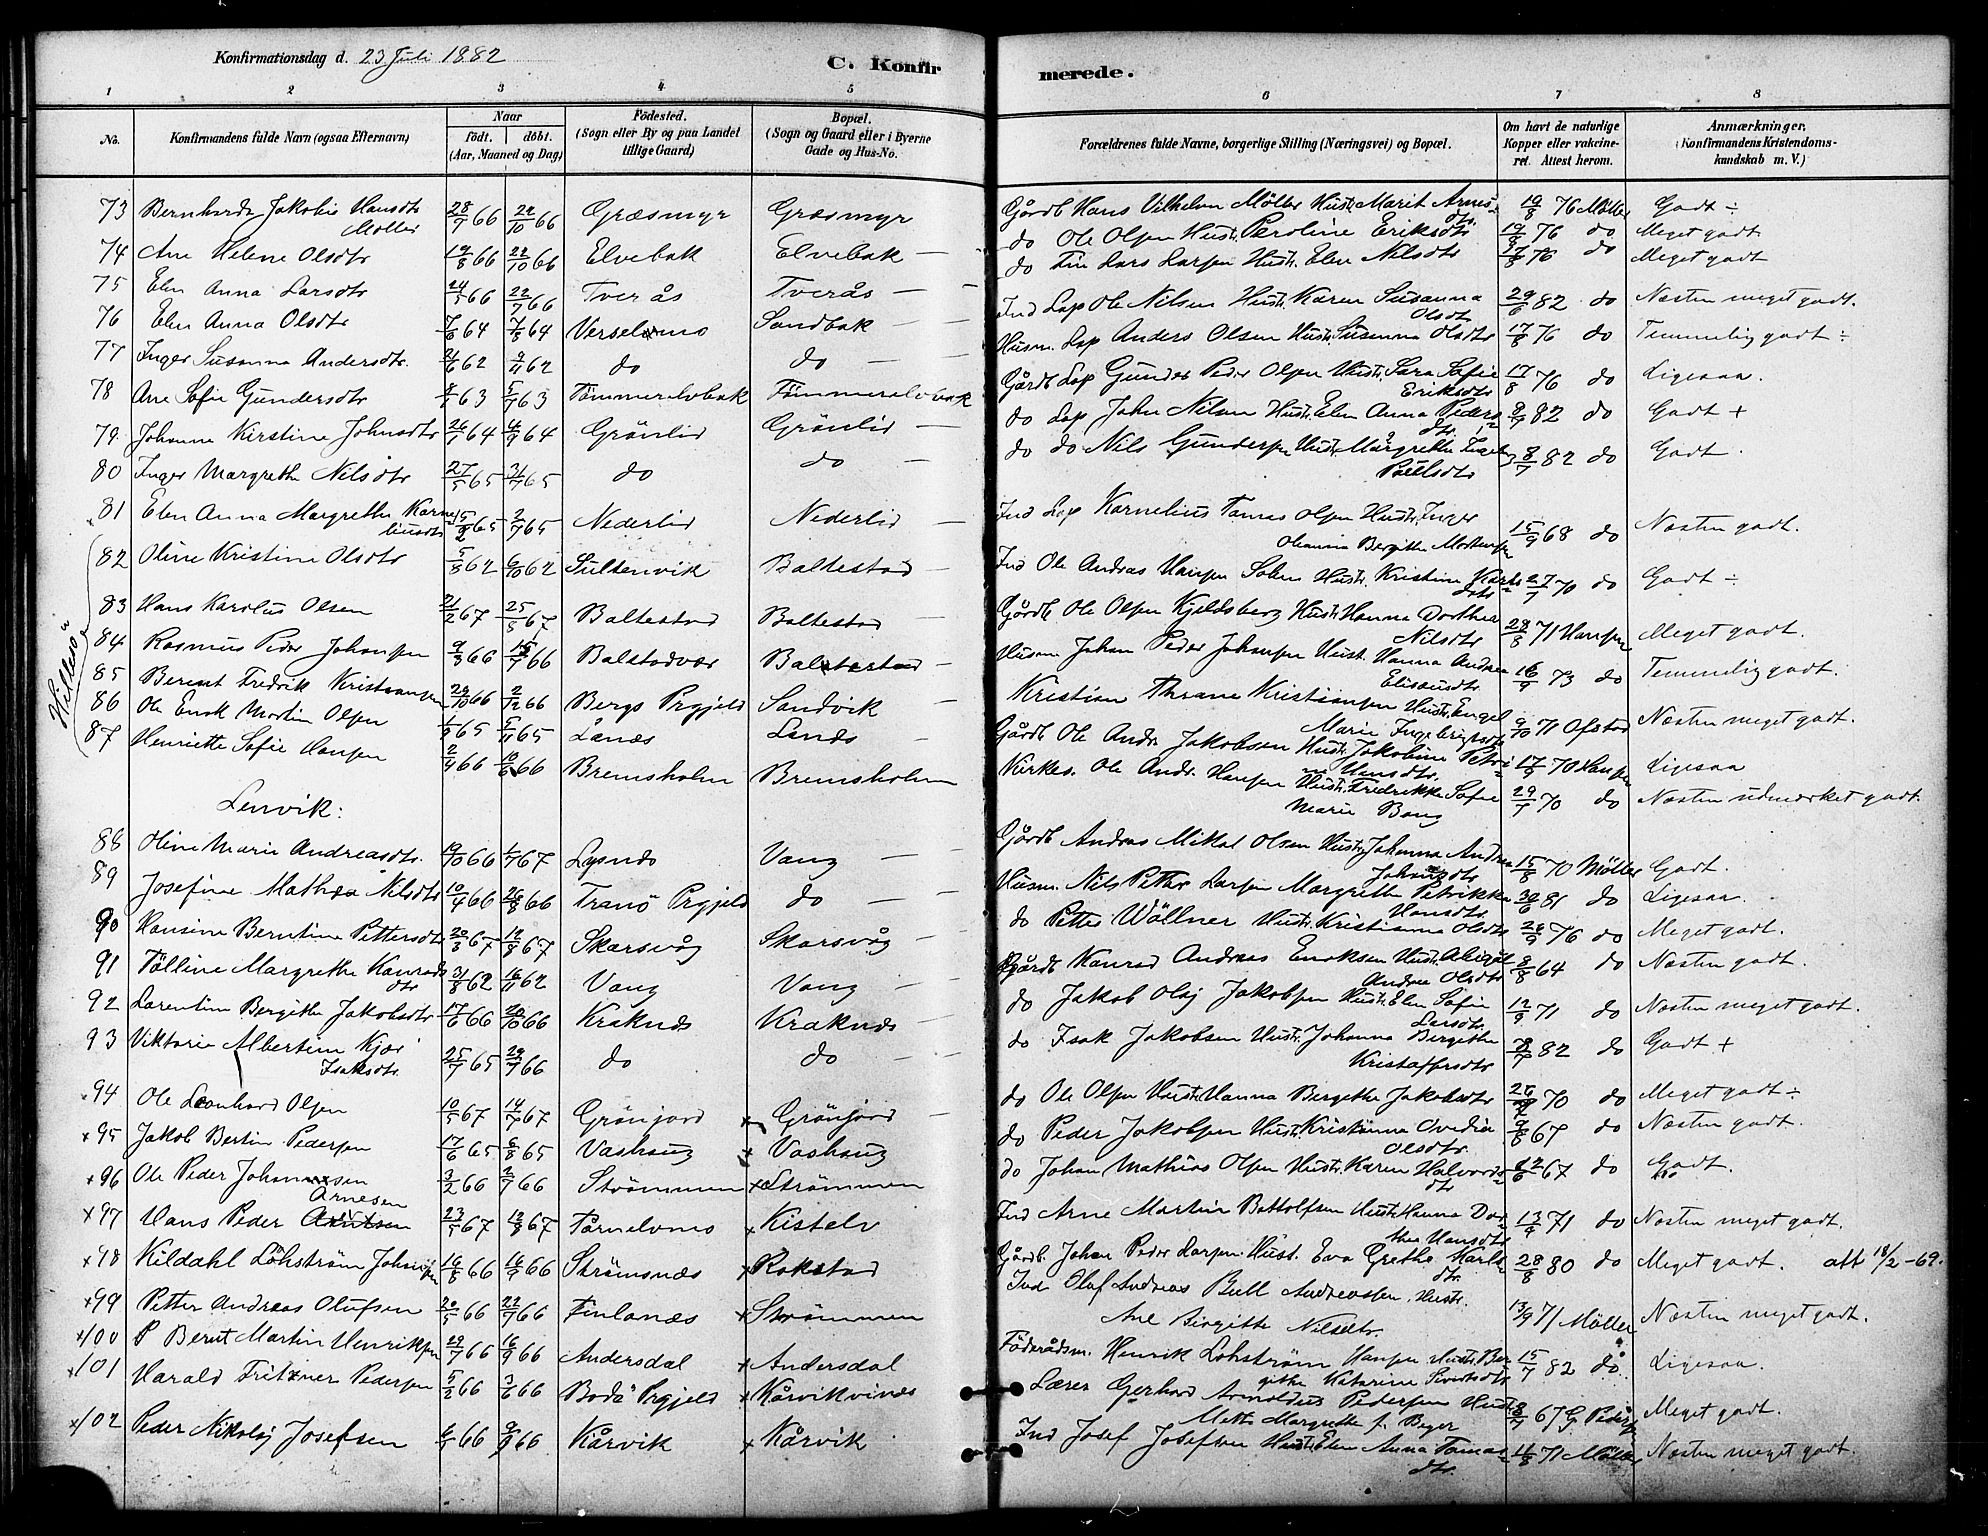 Konfirmationsdag d. 23 Juli 1882
C. Konfirmerede.
1 2 3 4 5 6 7 8
No. Konfirmandens fulde Navn (ogsaa Efternavn) Naar födt. döbt. (Aar, Maaned og Dag) Födested. (Sogn eller By og paa Landet tillige Gaard) Bopæl. (Sogn og Gaard eller i Byerne Gade og Hus-No. Forældrenes fulde Navne, borgerlige Stilling (Næringsvei) og Bopæl. Om havt de naturlige Kopper eller vakcineret. Attest herom. Anmærkninger. (Konfirmandens Kristendomskundskab m. V.)
73 Bernharda Jakobie Hansdtr Møller 28/7 66 66 Græsmyr Græsmyr Gårdb Hans Vilhelm Möller Hustr. Marit Arnesdtr 19/8 76 Möller Godt ÷
74 Ane Helene Olsdtr 19/8 66 22/10 66 Elvebak Elvebak do Ole Olsen Hust. Peroline Eriksdtr 76 do Meget godt
75 Elen Anna Larsdtr 24/5 66 22/7 66 Tverås Tverås do Fin Lars Larsen Hustr. Elen Nilsdtr 76 do Meget godt
76 Elen Anna Olsdtr 64 64 Verselvmo Sandbak Ind Lap Ole Nilsen Hustr. Karen Susanna Olsdtr 29/6 82 do Næsten meget godt.
77 Inger Susanna Andersdtr. 62 62 do do Husm. Lap Anders Olsen Hustr. Susanna Olsdtr 17/8 76 do Temmelig godt ÷
78 Ane Sofie Gundersdtr 63 63 Tömmerelvbak Tömmerelvbak Gårdb Lap Gunder Peder Olsen Hustr. Sara Sofie Eriksdtr 17/8 76 do Ligesaa.
79. Johanne Kirstine Johnsdtr 64 64 Grönlid Grönlid do Lap John Nilsen Hustr. Elen Anna Pedersdtr 82 do Godt +
80 Inger Margrethe Nilsdtr 27/5 65 31/7 65 do do do do Nils Gundersen Hustr. Margrethe Inger Poulsdtr 8/7 82 do Godt.
81 Elen Anna Margrethe Korneliusdtr 65 2/7 65 Nederlid Nederlid Ind Lap Kornelius Tomas Olsen Hustr. Inger Oleanna Bergitte Mortensen 15/9 68 do Næsten godt.
Hillesö
82 Oline Kristine Olsdtr 5/8 62 6/10 62 Sultenvik Baltestad Ind Ole Andreas Hansen Hustr. Kristine 27/7 70 do Godt ÷
83 Hans Karolus Olsen 21/2 67 25/5 67 Baltestad Baltestad Gårdb Ole Olsen Kjeldsberg Hustr. Hanna Dorthea Nilsdtr 28/8 71 Hansen Meget godt.
84 Rasmus Peder Johansen 9/3 66 66 Balstadvær Baltestad Husm Johan Peder Johansen Hustr. Hanna Andrea Eliseusdtr 16/9 73 do Temmelig godt.
85 Berent Fredrik Kristiansen 29/10 66 2/12 66 Bergs Prgjeld Sandvik Kristian Thrane Kristiansen Hustr. Engel Marie Ingebrigtsdtr 9/10 71 Ofstad Næsten meget godt.
86 Ole Enok Martin Olsen 65 65 Lånes Lånes Gårdb Ole Andr. Jakobsen Hustr. Jakobine Petrine Hansdtr. 70 Hansen Ligesaa
87 Henriette Sofie Hansen 2/4 66 10/6 66 Bremsholm Bremsholm Kirkes. Ole Andr. Hansen Hustr. Fredrikke Sofie Marie Bang 29/7 70 do Næsten udmærket godt.
Lenvik:
88 Oline Marie Andreasdtr. 19/10 66 67 Lysnes Vang Gårdb Andreas Mikal Olsen Hustr. Johanna Andrea 15/8 70 Möller Godt.
89 Josefine Mathea Nilsdtr 10/4 66 26/8 66 Tranö Prgjeld do Husm. Nils Petter Larsen Margrethe Petrikke Hansdtr 30/6 81 do Ligesaa.
90 Hansine Berntine Pettersdtr 20/3 67 12/8 67 Skarsvåg Skarsvåg do Petter Wöllner Hustr. Kristianna Olsdtr 76 do Meget godt.
91 Tölline Margrethe Konradsdtr 31/8 62 16/11 62 Vang Vang Gårdb Konrad Andreas Enoksen Hustr. Abigal Andrea Olsdtr 8/8 64 do Næsten godt.
92 Larentine Bergithe Jakobsdtr 17/6 66 20/10 66 Kraknes Kraknes do Jakob Olaj Jakobsen Hustr. Elen Sofie Larsdtr 12/9 71 do Næsten meget godt.
93 Viktoria Albertine Kjær Isaksdtr. 25/7 65 29/7 66 do do do Isak Jakobsen Hustr. Johanna Bergithe Kristoffersdtr 8/7 82 do Godt +
94 Ole Leonhard Olsen 10/5 67 14/7 67 Grönjord Grönjord do Ole Olsen Hustr. Hanna Bergethe Jakobsdtr 70 do Meget godt ÷
×95 Jakob Bertin Pedersen 17/6 65 6/8 65 Vashaug Vashaug do Peder Jakobsen Hustr. Kristianna Ovidia Olsdtr. 67 do Næsten godt.
×96 Ole Peder Johannesen 3/2 66 2/7 66 Strömmen × Strömmen do Johan Mathias Olsen Hustr. Karen Halvorsdtr 67 do Godt.
×97 Hans Peder Arnesen 23/5 67 12/8 67 Tårnelvmo × Kistelv Ind Arne Martin Bottolfsen Hustr. Hanna Dorthea Hansdtr 13/9 71 do Næsten meget godt.
×98 Kildahl Löhström Johansen 16/8 66 16/9 66 Strömsnæs × Rokstad Gårdb. Johan Peder Larsen Hust. Eva Grethe Karlsdtr. 28/8 80 do Meget godt. att 18/2-69.
×99 Petter Andreas Olufsen 20/5 66 22/7 66 Finlanæs × Strömmen Ind Olaf Andreas Bull Andreassen. Hustr. Ane Birgitte Nilsdtr. 13/9 71 Möller Næsten meget godt.
×100 P Bernt Martin Henriksen 29/7 66 16/9 66 Andersdal × Andersdal Föderådsm. Henrik Lohström Hansen Hustr. Bergithe Katarine Sivertsdtr 15/7 82 do. Ligesaa.
×101 Harald Fritzner Pedersen 66 3/6 66 Bodö Prgjeld × Kårvikvines Lærer Gerhard Arnoldus Pedersen Hustr. Mette Margrethe f. Beyer 8/7 67 G. Pedersen Meget godt.
×102 Peder Nikolaj Josefsen 66 66 Kårvik × Kårvik Ind Josef Josefsen Hustr. Elen Anna Tomasdtr. 71 Möller Næsten meget godt.